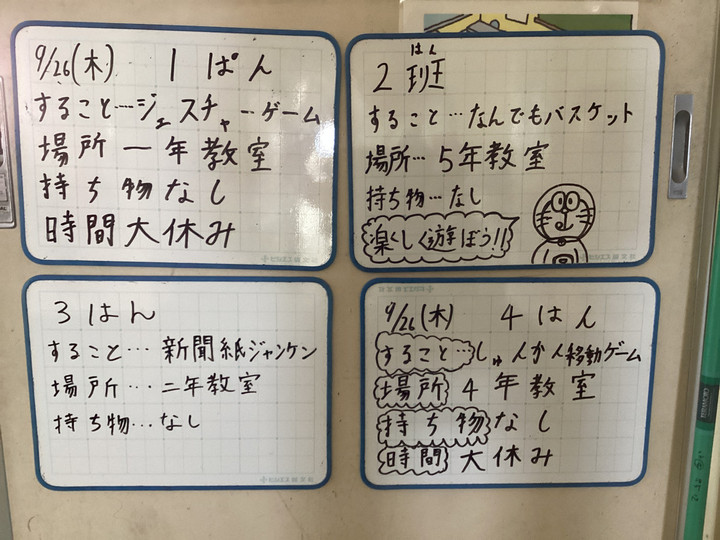 9/26(木) 1 ぱん
すること…ジェスチャーゲーム
場所 一年教室
持ち物なし
時間大休み
はん
2 班
すること…なんでもバスケット
場所…5年教室
持ち物…なし
楽しく遊ぼう!!
3 はん
すること…新聞紙ジャンケン
場所…二年教室
持ち物…なし
9/26(木) 4 はん
すること…しゅんかん移動ゲーム
場所 4年教室
持ち物なし
時間 大休み